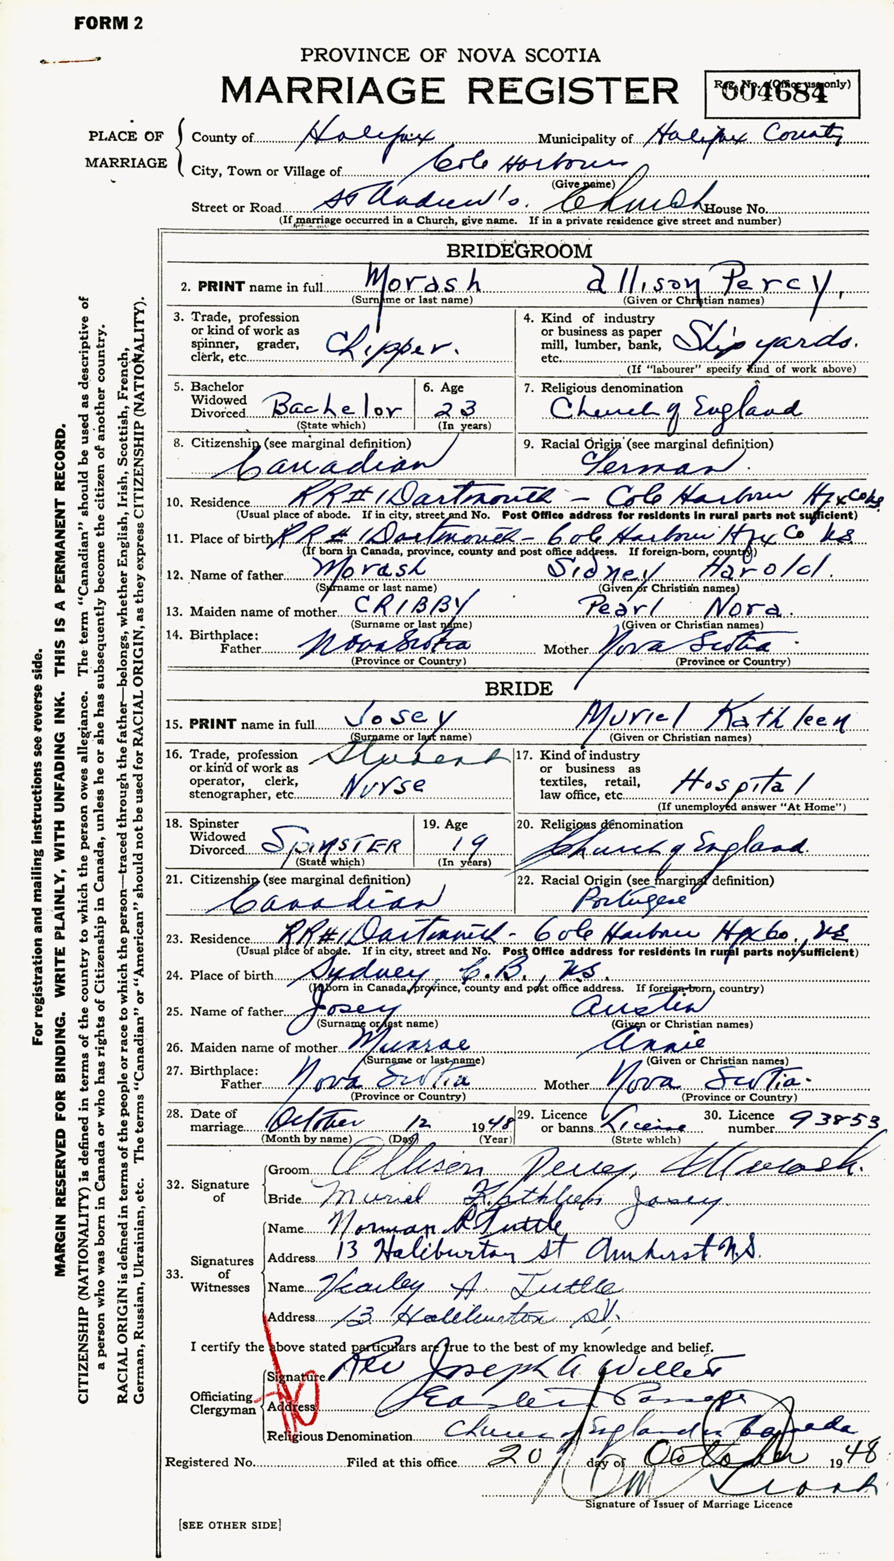 FORM 2
PROVINCE OF NOVA SCOTIA
MARRIAGE REGISTER
Reg. No. (Office use only)
004684
PLACE OF MARRIAGE
County of Halifax Municipality of Halifax County
City, Town or Village of Cole Harbour
(Give name)
Street or Road St Andrew's. Church House No.
(If marriage occurred in a Church, give name. If in a private residence give street and number)
BRIDEGROOM
2. PRINT name in full Morash Allison Percy,
(Surname or last name) (Given or Christian names)
3. Trade, profession or kind of work as spinner, grader, clerk, etc. Chipper.
4. Kind of industry or business as paper mill, lumber, bank, etc. Shipyards.
(If "labourer" specify kind of work above)
5. Bachelor Widowed Divorced Bachelor
(State which)
6. Age 23
(In years)
7. Religious denomination
Church of England
8. Citizenship (see marginal definition)
Canadian
9. Racial Origin (see marginal definition)
German.
10. Residence RR#1 Dartmouth - Cole Harbour Hfx Co NS
(Usual place of abode. If in city, street and No. Post Office address for residents in rural parts not sufficient)
11. Place of birth RR#1 Dartmouth - Cole Harbour Hfx Co NS
(If born in Canada, province, county and post office address. If foreign-born, country)
12. Name of father Morash Sidney Harold.
(Surname or last name) (Given or Christian names)
13. Maiden name of mother CRIBBY Pearl Nora.
(Surname or last name) (Given or Christian names)
14. Birthplace:
Father Nova Scotia Mother Nova Scotia.
(Province or Country) (Province or Country)
BRIDE
15. PRINT name in full Josey Muriel Kathleen
(Surname or last name) (Given or Christian names)
16. Trade, profession or kind of work as operator, clerk, stenographer, etc. Student Nurse
17. Kind of industry or business as textiles, retail, law office, etc. Hospital
(If unemployed answer "At Home")
18. Spinster Widowed Divorced SPINSTER
(State which)
19. Age 19
(In years)
20. Religious denomination
Church of England
21. Citizenship (see marginal definition)
Canadian
22. Racial Origin (see marginal definition)
Portugese
23. Residence RR#1 Dartmouth - Cole Harbour Hfx Co., NS
(Usual place of abode. If in city, street and No. Post Office address for residents in rural parts not sufficient)
24. Place of birth Sydney, C.B., NS.
(If born in Canada, province, county and post office address. If foreign-born, country)
25. Name of father Josey Austin
(Surname or last name) (Given or Christian names)
26. Maiden name of mother Munroe Annie
(Surname or last name) (Given or Christian names)
27. Birthplace:
Father Nova Scotia Mother Nova Scotia.
(Province or Country) (Province or Country)
28. Date of marriage October 12 1948
(Month by name) (Day) (Year)
29. Licence or banns License
(State which)
30. Licence number 93853
32. Signature of
Groom Allison Percy Morash.
Bride Muriel Kathleen Josey
33. Signatures of Witnesses
Name Norman R Tuttle
Address 13 Haliburton St Amherst N.S.
Name A. Tuttle
Address 13 Haliburton St.
I certify the above stated particulars are true to the best of my knowledge and belief.
Officiating Clergyman
Signature Rev Joseph A Willett
Address Eastern Passage
Religious Denomination Church of England in Canada
Registered No. Filed at this office 20 day of October 1948
Signature of Issuer of Marriage Licence
[SEE OTHER SIDE]
For registration and mailing instructions see reverse side.
MARGIN RESERVED FOR BINDING. WRITE PLAINLY, WITH UNFADING INK. THIS IS A PERMANENT RECORD.
CITIZENSHIP (NATIONALITY) is defined in terms of the country to which the person owes allegiance. The term "Canadian" should be used as descriptive of
a person who was born in Canada or who has rights of Citizenship in Canada, unless he or she has subsequently become the citizen of another country.
RACIAL ORIGIN is defined in terms of the people or race to which the person—traced through the father—belongs, whether English, Irish, Scottish, French,
German, Russian, Ukrainian, etc. The terms "Canadian" or "American" should not be used for RACIAL ORIGIN, as they express CITIZENSHIP (NATIONALITY).